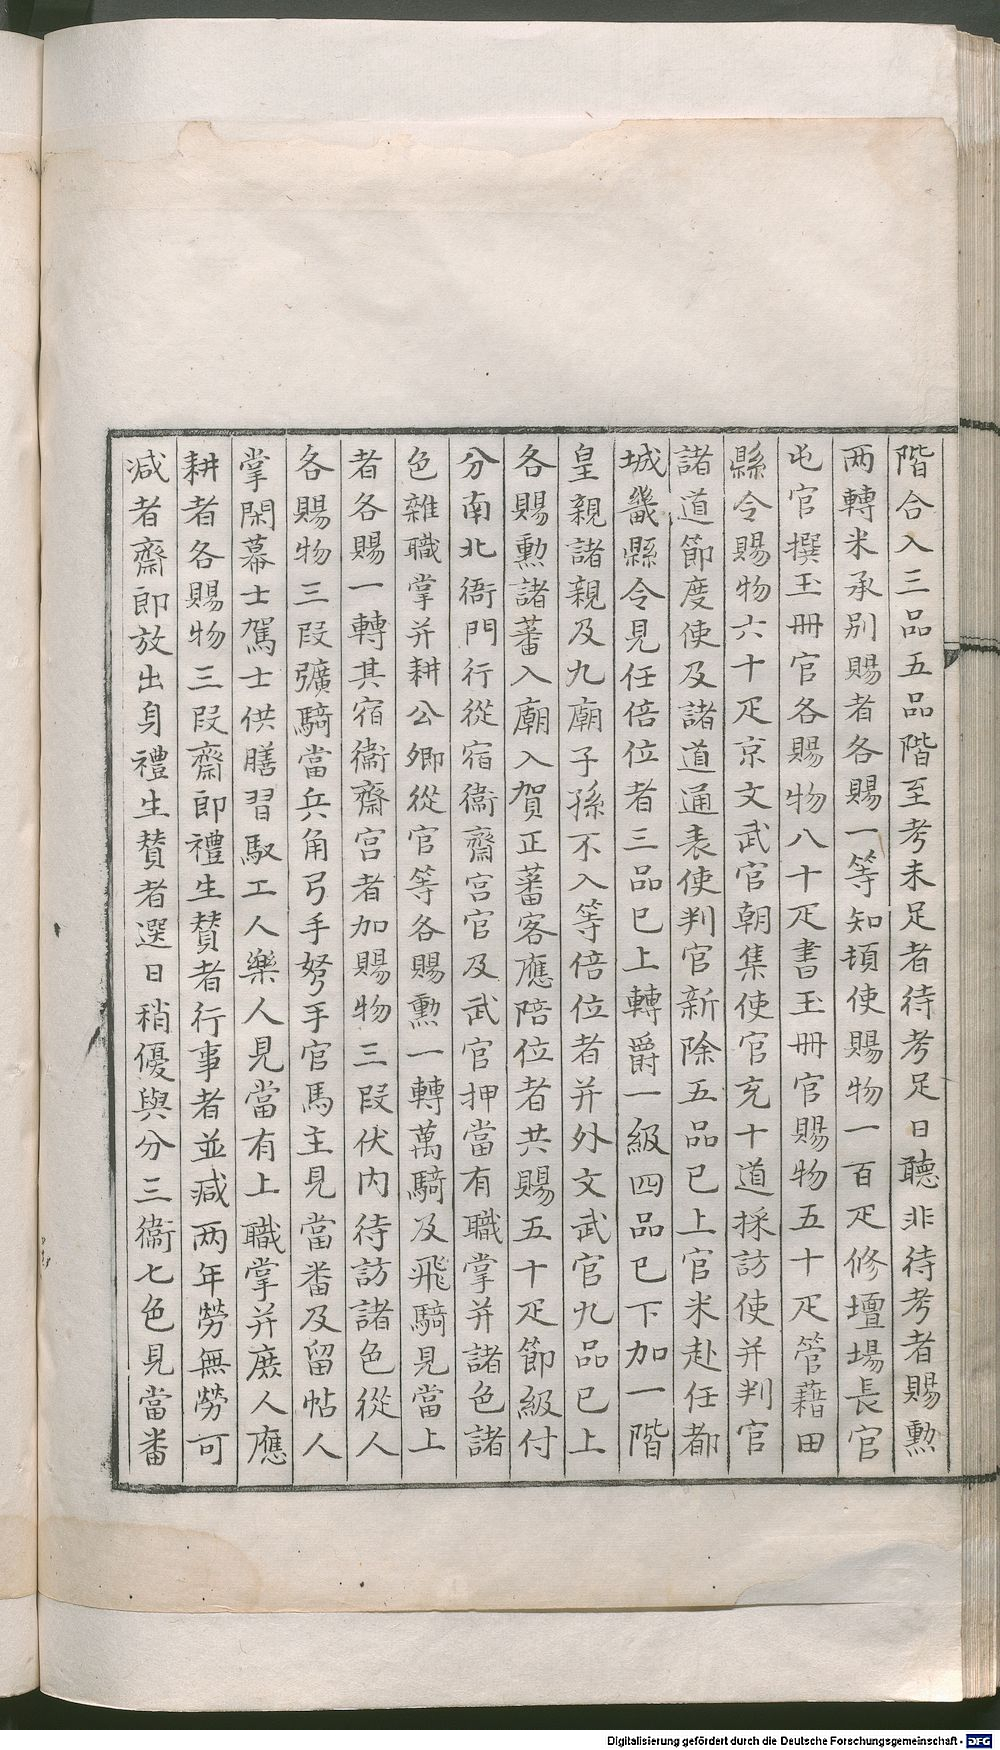 階合入三品五品階至考未足者待考足日聽非待考者賜勲
两轉米承別賜者各賜一等知頓使賜物一百疋修壇場長官
屯官撰玉冊官各賜物八十疋書玉冊官賜物五十疋管藉田
縣令賜物六十疋京文武官朝集使官充十道採訪使并判官
諸道節度使及諸道通表使判官新除五品已上官米赴任都
城畿縣令見任倍位者三品已上轉爵一級四品已下加一階
皇親諸親及九廟子孫不入等倍位者并外文武官九品已上
各賜勲諸蕃入廟入賀正蕃客應陪位者共賜五十疋節級付
分南北衙門行從宿衞齋宫官及武官押當有職掌并諸色諸
色雜職掌并耕公卿從官等各賜勲一轉萬騎及飛騎見當上
者各賜一轉其宿衞齋宫者加賜物三叚伏内待訪諸色從人
各賜物三叚彍騎當兵角弓手弩手官馬主見當番及留帖人
掌閑幕士駕士供膳習馭工人樂人見當有上職掌并庶人應
耕者各賜物三叚齋郎禮生賛者行事者並减两年勞無勞可
减者齋郎放出身禮生賛者選日稍優與分三衞七色見當番
Digitalisierung gefördert durch die Deutsche Forschungsgemeinschaft - DFG